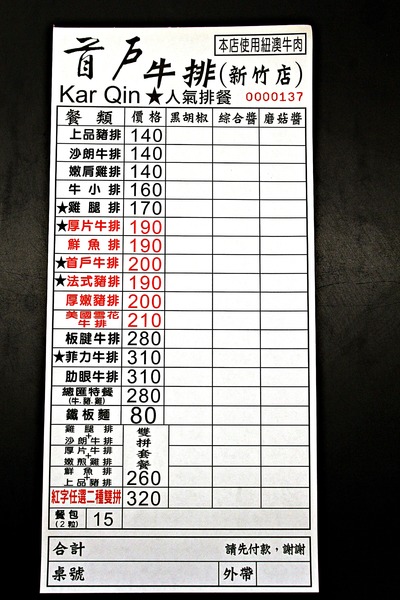 本店使用紐澳牛肉
首戶牛排(新竹店)
Kar Qin ★人氣排餐 0000137
餐類 價格 黑胡椒 綜合醬 磨菇醬
上品豬排 140
沙朗牛排 140
嫩肩雞排 140
牛小排 160
★雞腿排 170
★厚片牛排 190
鮮魚排 190
★首戶牛排 200
★法式豬排 190
厚嫩豬排 200
美國雪花牛排 210
板腱牛排 280
★菲力牛排 310
肋眼牛排 310
總匯特餐 280
(牛.豬.雞)
鐵板麵 80
雞腿排+沙朗牛排 雙拼套餐 260
厚片牛排+嫩煎雞排
鮮魚排+上品豬排
紅字任選二種雙拼 320
餐包 15
(2粒)
合計 請先付款，謝謝
桌號 外帶